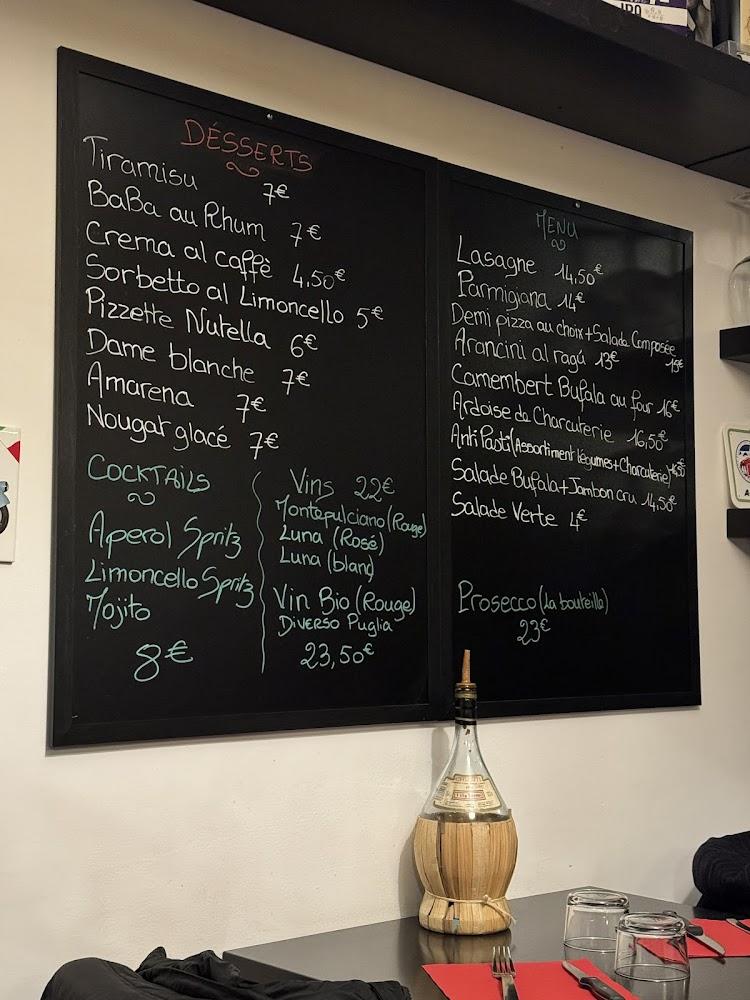 DÉSSERTS
Tiramisu 7€
BaBa au Rhum 7€
Crema al caffè 4,50€
Sorbetto al Limoncello 5€
Pizzette Nutella 6€
Dame blanche 7€
Amarena 7€
Nougat glacé 7€
COCKTAILS
Aperol Spritz
Limoncello Spritz
Mojito
8€
Vins 22€
Montepulciano (Rouge)
Luna (Rosé)
Luna (blanc)
Vin Bio (Rouge)
DIVERSO Puglia
23,50€
MENU
Lasagne 14,50€
Parmigiana 14€
Demi pizza au choix + Salade Composée
15€
Arancini al ragú 13€
Camembert Bufala au four 16€
Ardoise de Charcuterie 16,50€
Anti Pasti (Assortiment légumes + Charcuterie)
Salade Bufala + Jambon cru 14,50€
Salade Verte 4€
Prosecco (la bouteille)
23€